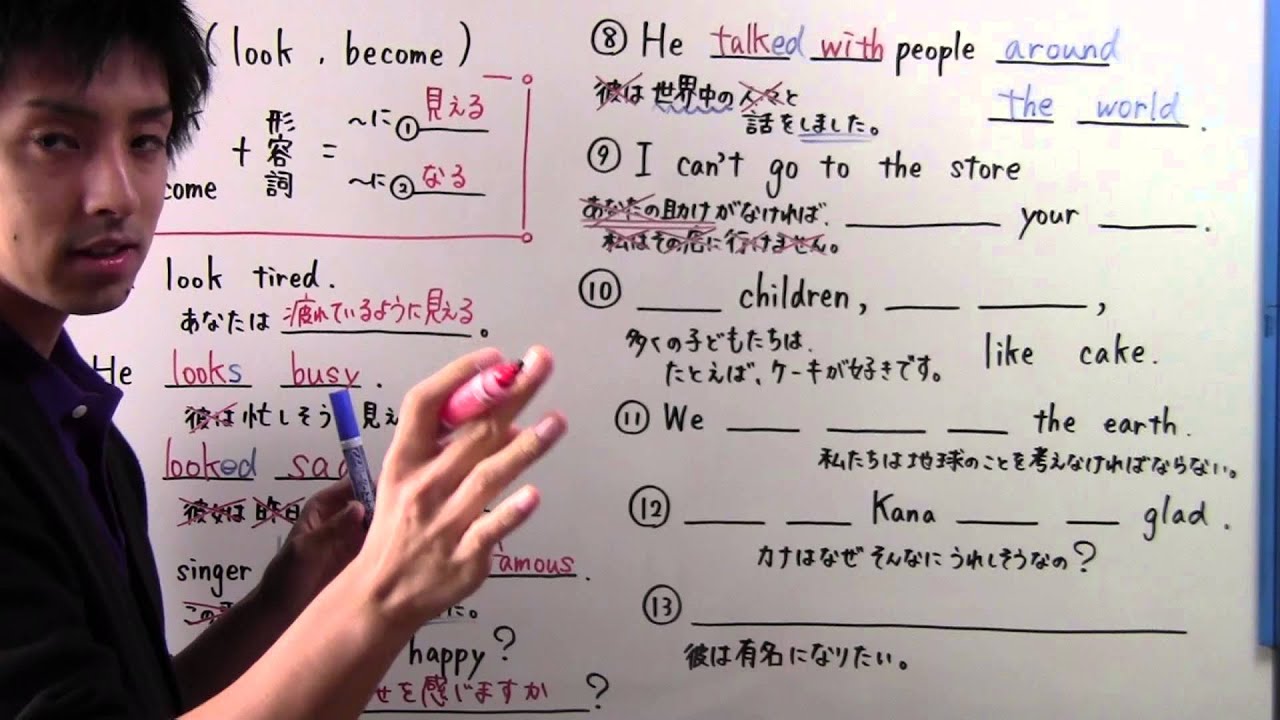 (look , become)
＋ 形容詞 ＝ ～に①見える
come ～に②なる
look tired.
あなたは 疲れているように見える 。
He looks busy .
彼は忙しそう 見え
looked sad
彼女は昨日
singer famous .
この
に。
happy ?
せを感じますか ?
⑧ He talked with people around
彼は世界中の人々と
the world .
話をしました。
⑨ I can't go to the store
あなたの助けがなければ、
your .
私はその店に行けません。
⑩ children, ,
多くの子どもたちは、
like cake.
たとえば、ケーキが好きです。
⑪ We the earth.
私たちは地球のことを考えなければならない。
⑫ Kana glad.
カナはなぜそんなにうれしそうなの？
⑬
彼は有名になりたい。